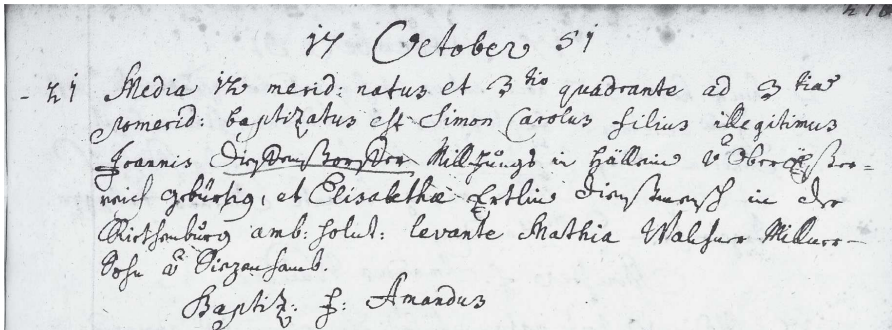 17 October 51
21 Media 12 merid: natus et 3tio quadrante ad 3tia
pomerid: baptizatus est Simon Carolus filius illegitimus
Joannis Milljungs in Hällein v Oberößer=
reich gebürtig, et Elisabetha Ertlin dienstmensch in der
Riethenburg amb: solut: levante Mathia Walhner Millner-
Sohn v
Baptiz: P: Amandus